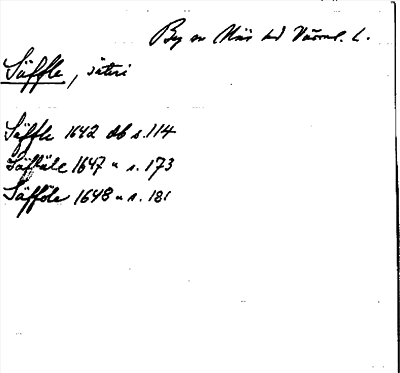 By en Näs hd Värml. l.
Säffle, säteri
Säffle 1642 db s. 114
Säfkäle 1647 " s. 173
Säfföle 1648 " s. 181